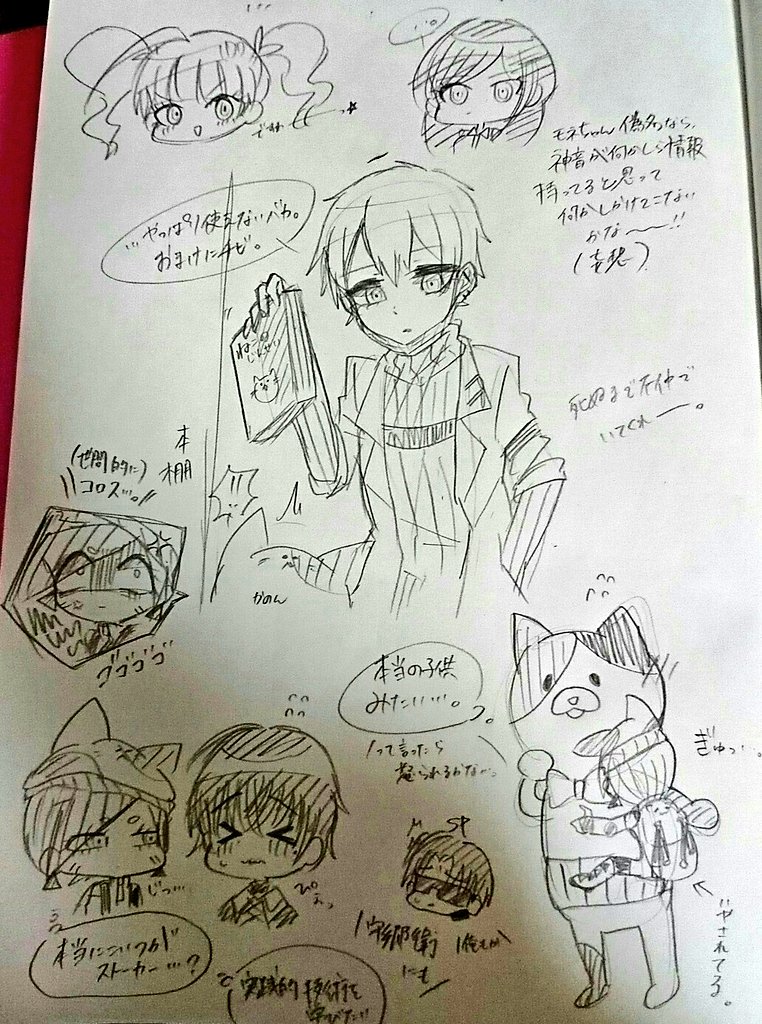 …
モネちゃん偽名なら、
神音が何かしら情報
持ってると思って
何かしかけてこない
かな〜〜!!
(妄想)
…やっぱり使えないバカ。
おまけにチビ。
ねこの
死ぬまで不仲で
いてくれー。
本棚
(世間的に)
コロス…。
!!
かのん
ゴゴゴゴ
本当の子供
みたい…。
って言ったら
怒られるかな…。
ぎゅっ…。
じっ…
ぴぇっ
本当にこいつが
ストーカー…?
SP
いやされてる。